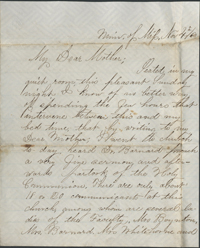 Univ. of Mi. Nov
My Dear Mother,
Seated in my
quiet room this pleasant Sunday
night I know of no better way
of spending the few hours that
intervene between this and my
bed time than by writing to my
Dear Mother. I went to church
to day, heard Dr. Barnard preach
a very fine sermon, and after-
wards partook of the Holy
Communion. There are only about
15 or 20 communicants to this
church, among whom are the
ladies of the Faculty, Mrs Boynton
Mrs Barnard Mrs Whitehorne and